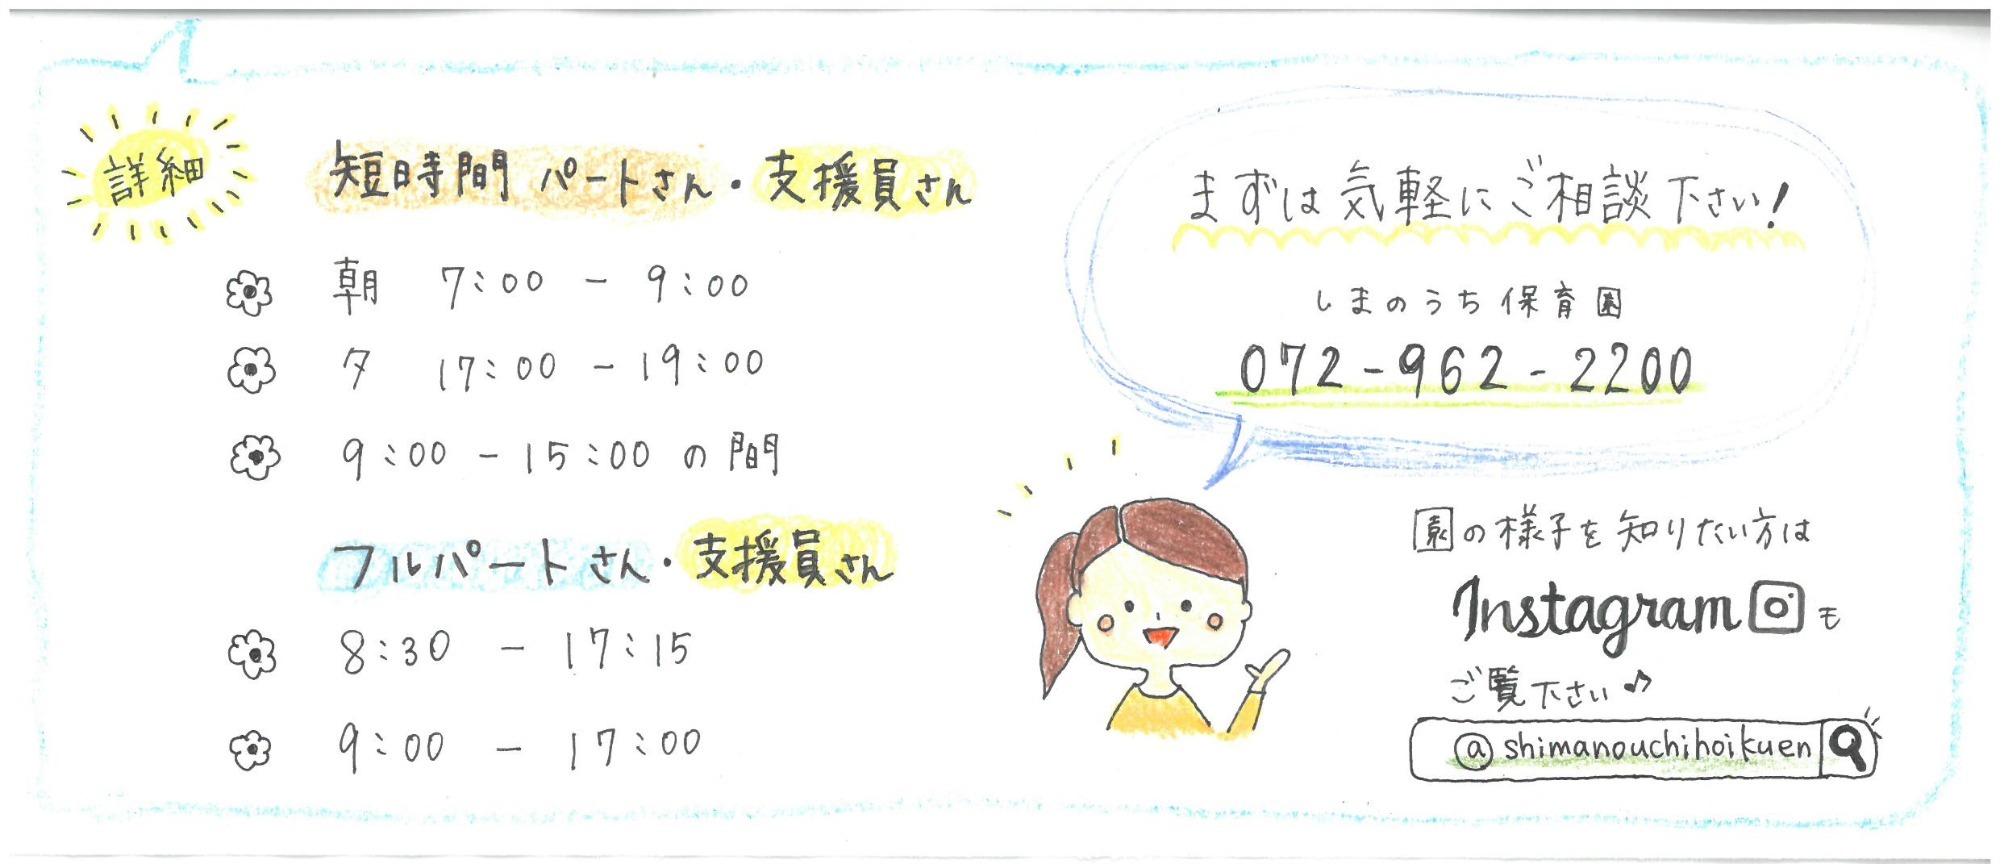 詳細
短時間パートさん・支援員さん
朝 7:00 - 9:00
夕 17:00 - 19:00
9:00 - 15:00 の間
フルパートさん・支援員さん
8:30 - 17:15
9:00 - 17:00
まずは気軽にご相談下さい!
しまのうち保育園
072-962-2200
園の様子を知りたい方は
Instagramも
ご覧下さい♪
@shimanouchihoikuen